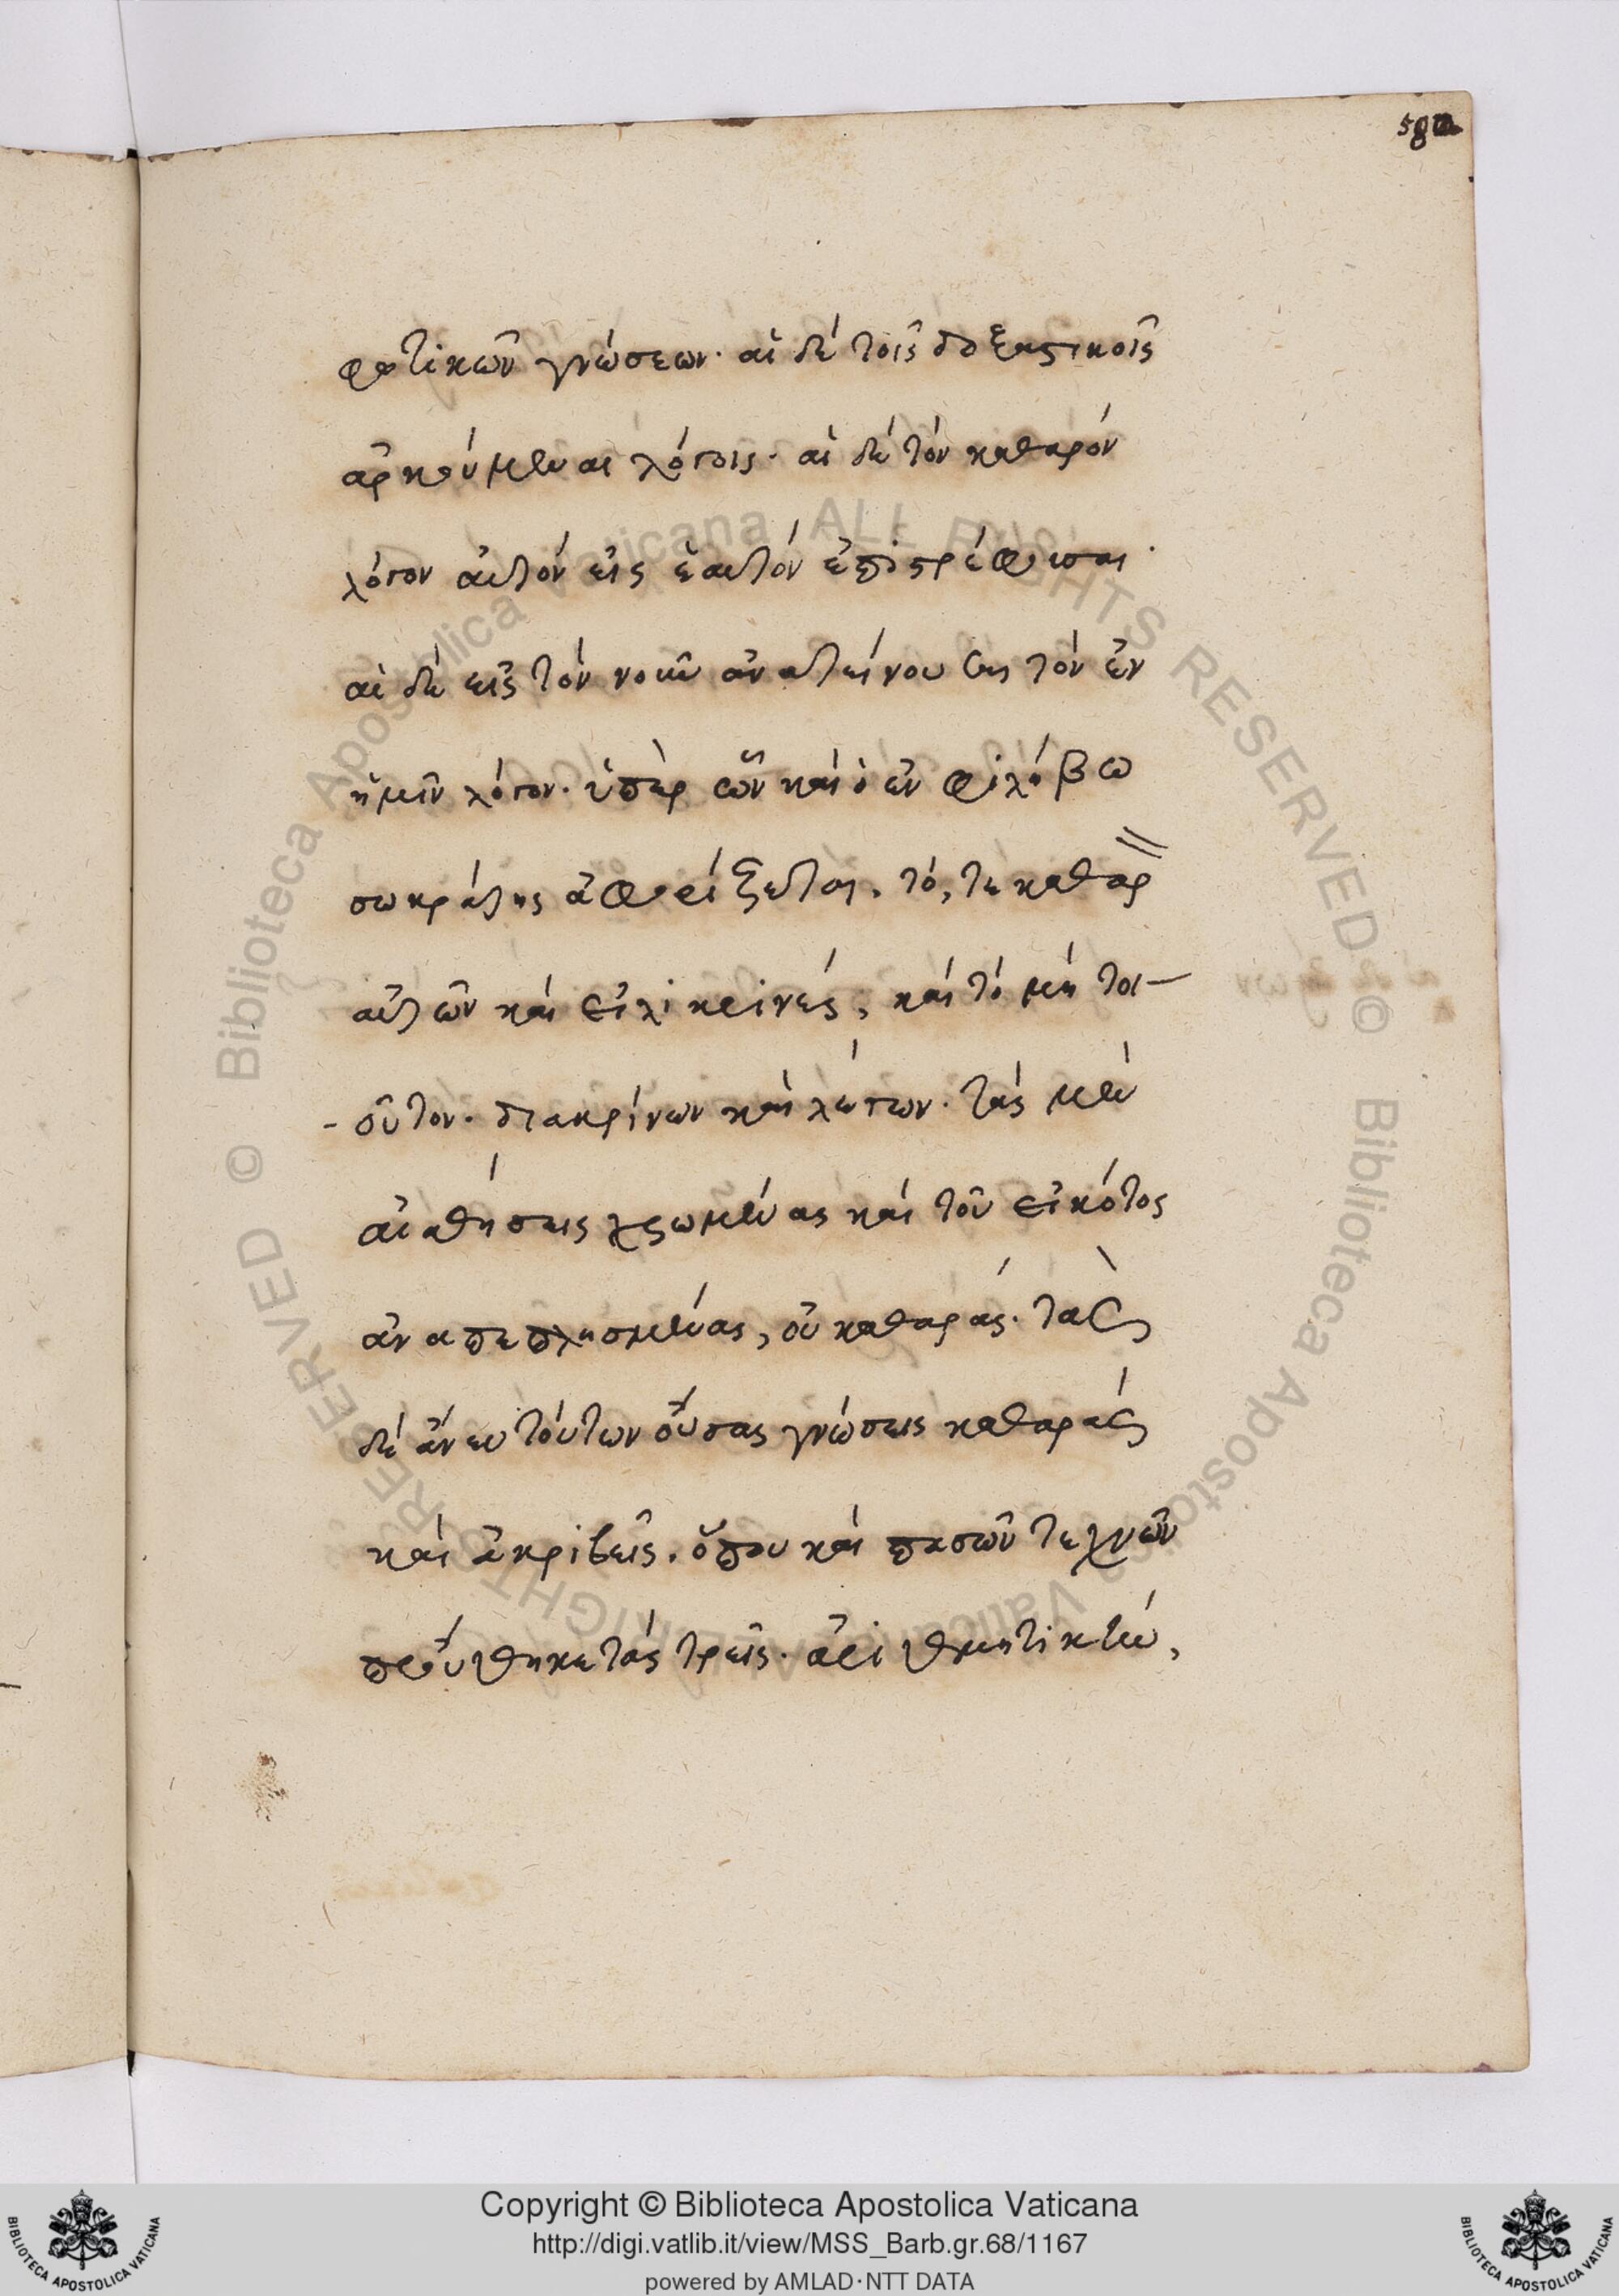 580
φατικῶν γνώσεων· αἱ δὲ τοῖς δοξαστικοῖς
ἀρκούμεναι λόγοις· αἱ δὲ τὸν καθαρὸν
λόγον αὐτὸν εἰς ἑαυτὸν ἐπιστρέφουσαι·
αἱ δὲ εἰς τὸν νοῦν ἀνατείνουσαι τὸν ἐν
ἡμῖν λόγον· ὑπὲρ ὧν καὶ ὁ ἐν φιλήβω
σωκράτης ἀφορίζεται, τό, τε καθαρ
αὐτῶν καὶ εἰλικρινές, καὶ τὸ μὴ τοι-
-οῦτον· διακρίνων καὶ λέγων· τὰς μὲν
αἰσθήσεις χρωμένας καὶ τοῦ εἰκότος
ἀναπεπλησμένας, οὐ καθαράς· τὰς
δὲ ἄνευ τούτων οὔσας γνώσεις καθαρὰς
καὶ ἀκριβεῖς. ὅπου καὶ πασῶν τεχνῶν
προὔθηκε τὰς τρεῖς· ἀριθμητικὴν,
Copyright © Biblioteca Apostolica Vaticana
http://digi.vatlib.it/view/MSS_Barb.gr.68/1167
powered by AMLAD·NTT DATA
BIBLIOTECA APOSTOLICA VATICANA
BIBLIOTECA APOSTOLICA VATICANA
Biblioteca Apostolica Vaticana ALL RIGHTS RESERVED ©
Biblioteca Apostolica Vaticana ALL RIGHTS RESERVED ©